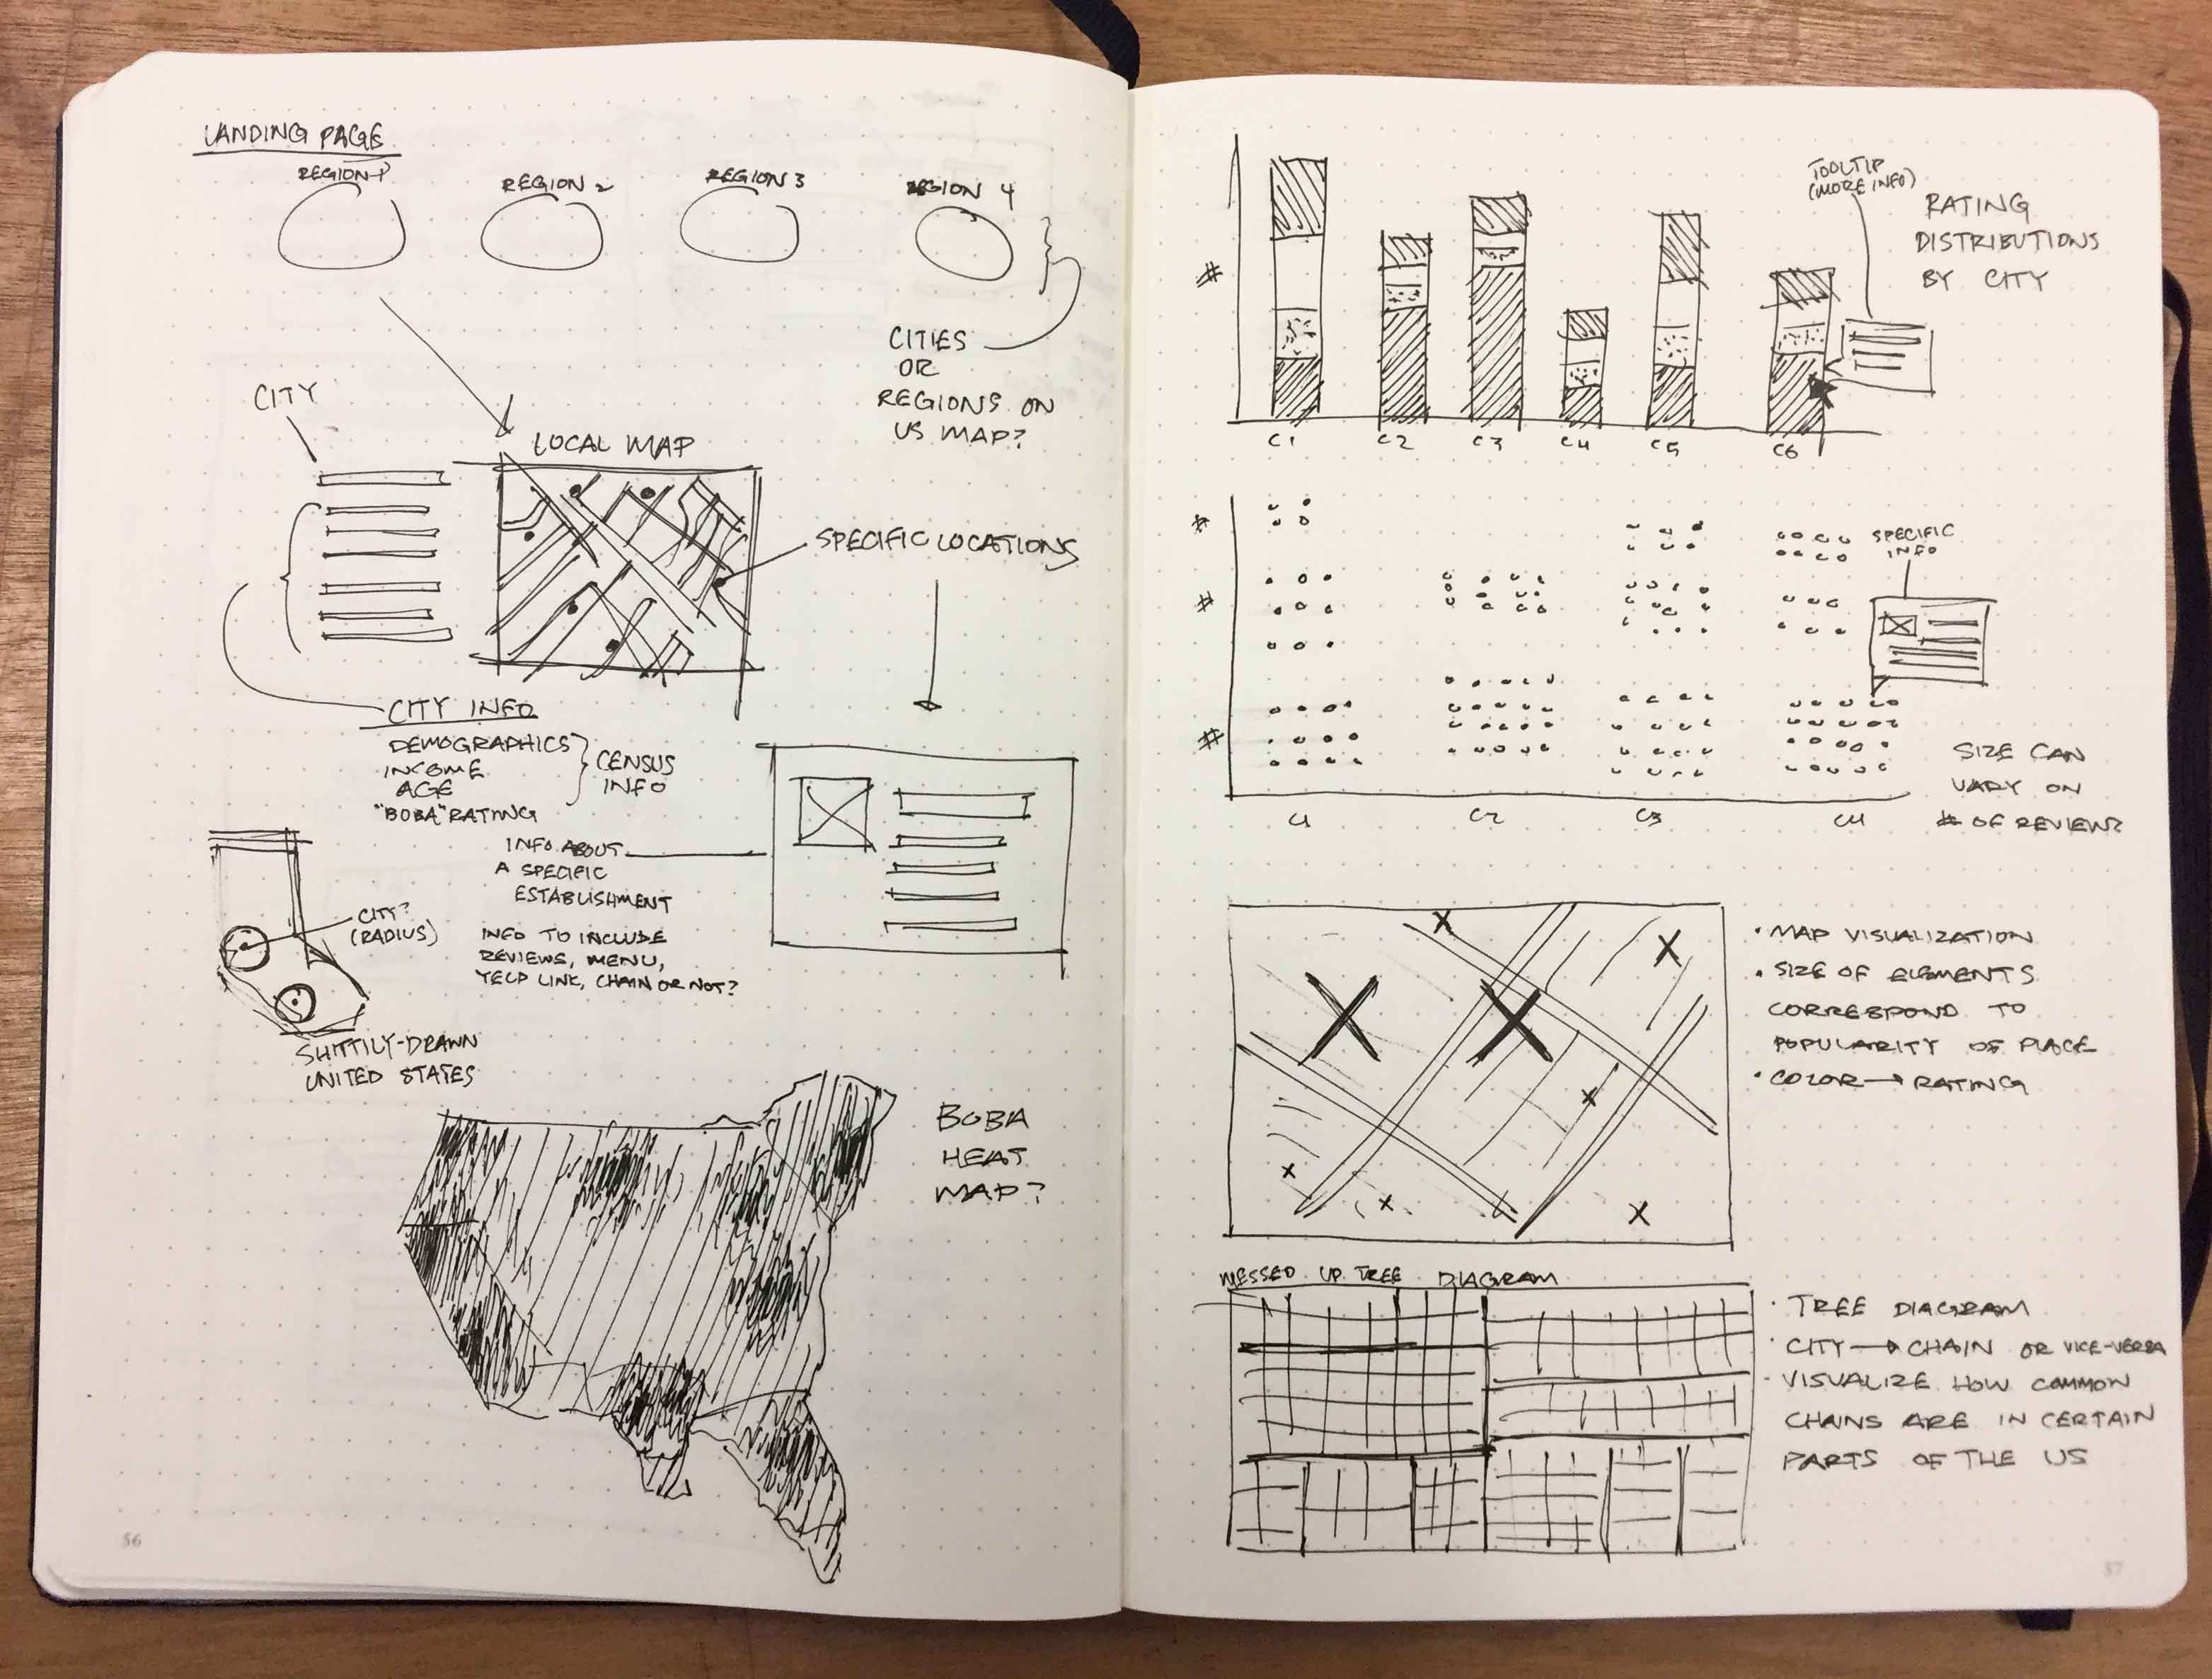 LANDING PAGE
REGION 1
REGION 2
REGION 3
REGION 4
CITIES
OR
REGIONS ON
US MAP?
CITY
LOCAL MAP
SPECIFIC LOCATIONS
CITY INFO
DEMOGRAPHICS
INCOME
AGE
"BOBA" RATING
CENSUS
INFO
INFO ABOUT
A SPECIFIC
ESTABLISHMENT
INFO TO INCLUDE
REVIEWS, MENU,
YELP LINK, CHAIN OR NOT?
CITY?
(RADIUS)
SHITTILY-DRAWN
UNITED STATES
BOBA
HEAT
MAP?
56
TOOLTIP
(MORE INFO)
RATING
DISTRIBUTIONS
BY CITY
#
C1 C2 C3 C4 C5 C6
#
#
#
SPECIFIC
INFO
SIZE CAN
VARY ON
# OF REVIEWS
C1 C2 C3 C4
• MAP VISUALIZATION
• SIZE OF ELEMENTS
CORRESPOND TO
POPULARITY OF PLACE
• COLOR → RATING
MESSED UP TREE DIAGRAM
• TREE DIAGRAM
• CITY → CHAIN OR VICE-VERSA
• VISUALIZE HOW COMMON
CHAINS ARE IN CERTAIN
PARTS OF THE US
57